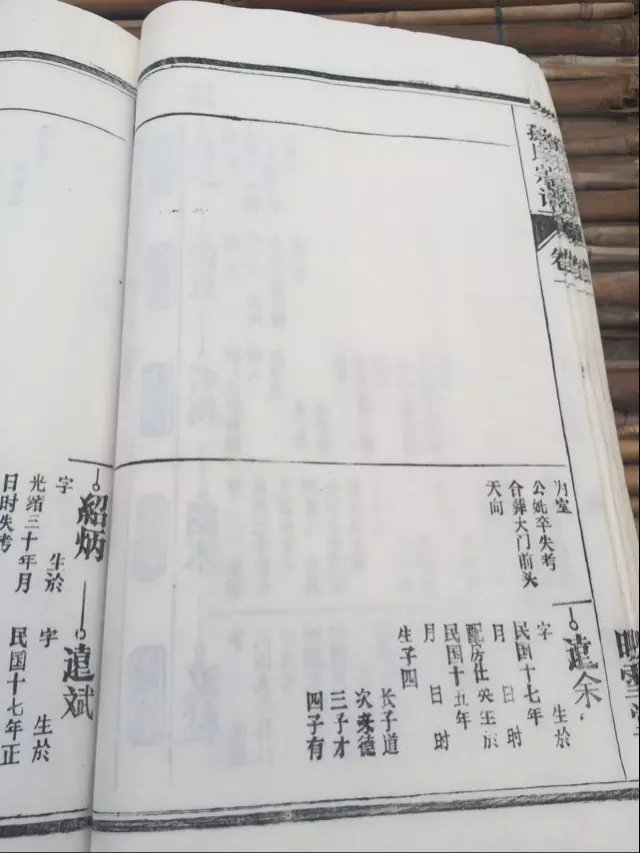 孫氏宗譜
卷
映雪堂
为室
公妣卒失考
合葬大门前头
天向
遠余
字 生於
民国十七年
月 日 时
配厉仕英生於
民国十五年
月 日 时
生子四
长子道
次来德
三子才
四子有
紹炳
字 生於
光绪三十年月
日时失考
遠斌
字 生於
民国十七年正